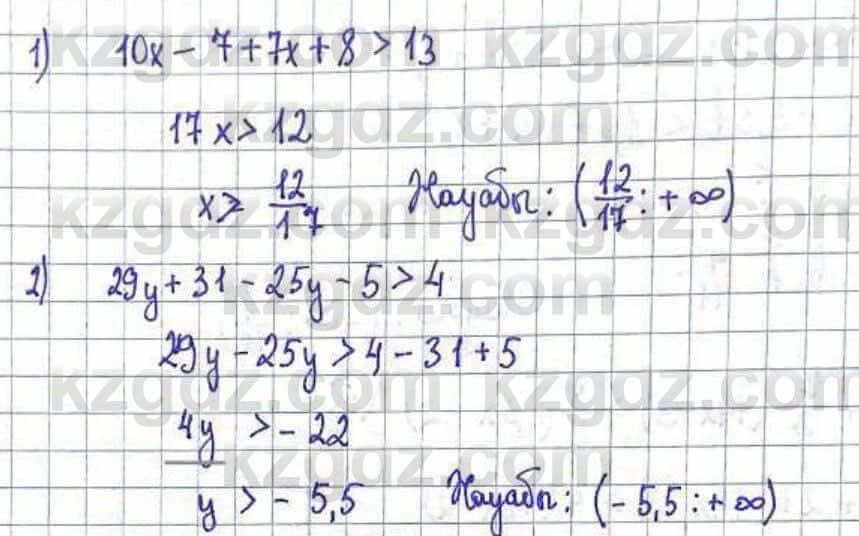 1) 10x - 7 + 7x + 8 > 13
17x > 12
x > 12/17 Жауабы: (12/17 : + ∞)
2) 29y + 31 - 25y - 5 > 4
29y - 25y > 4 - 31 + 5
4y > - 22
y > - 5,5 Жауабы: (- 5,5 : + ∞)
kzgdz.com